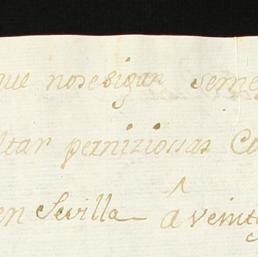 que nosesigan seme
ltar perniziossas Co
en Sevilla â veinte